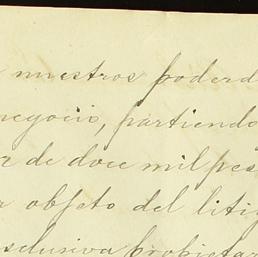 nuestros poderd
negocio, partiendo
de doce mil pes
objeto del litig
sclusiva propietar